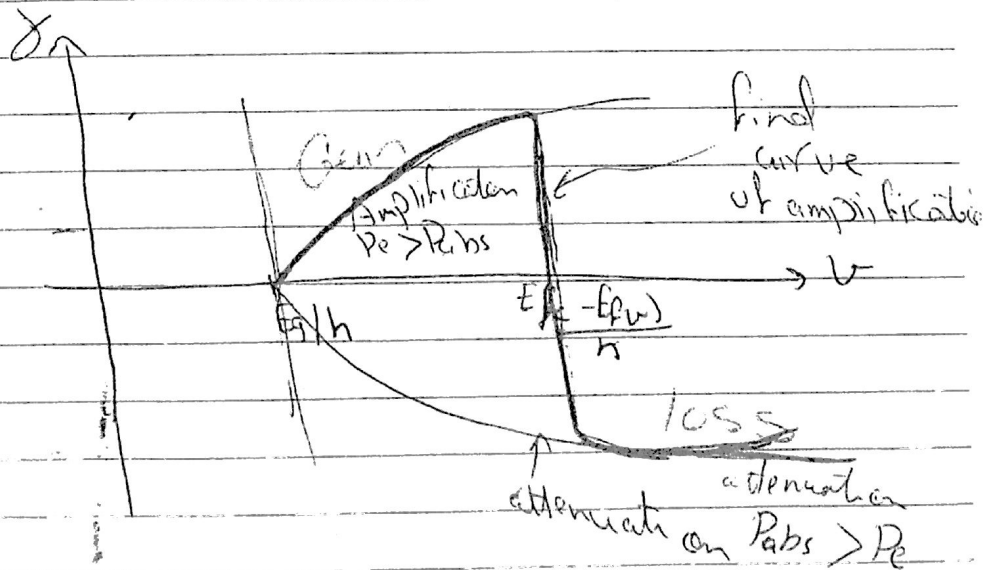 γ
Gain
Amplification
Pe > Pabs
final
curve
of amplificatio
ν
Eg/h
E(fc - Efv)
h
loss
attenuation
attenuati on Pabs > Pe